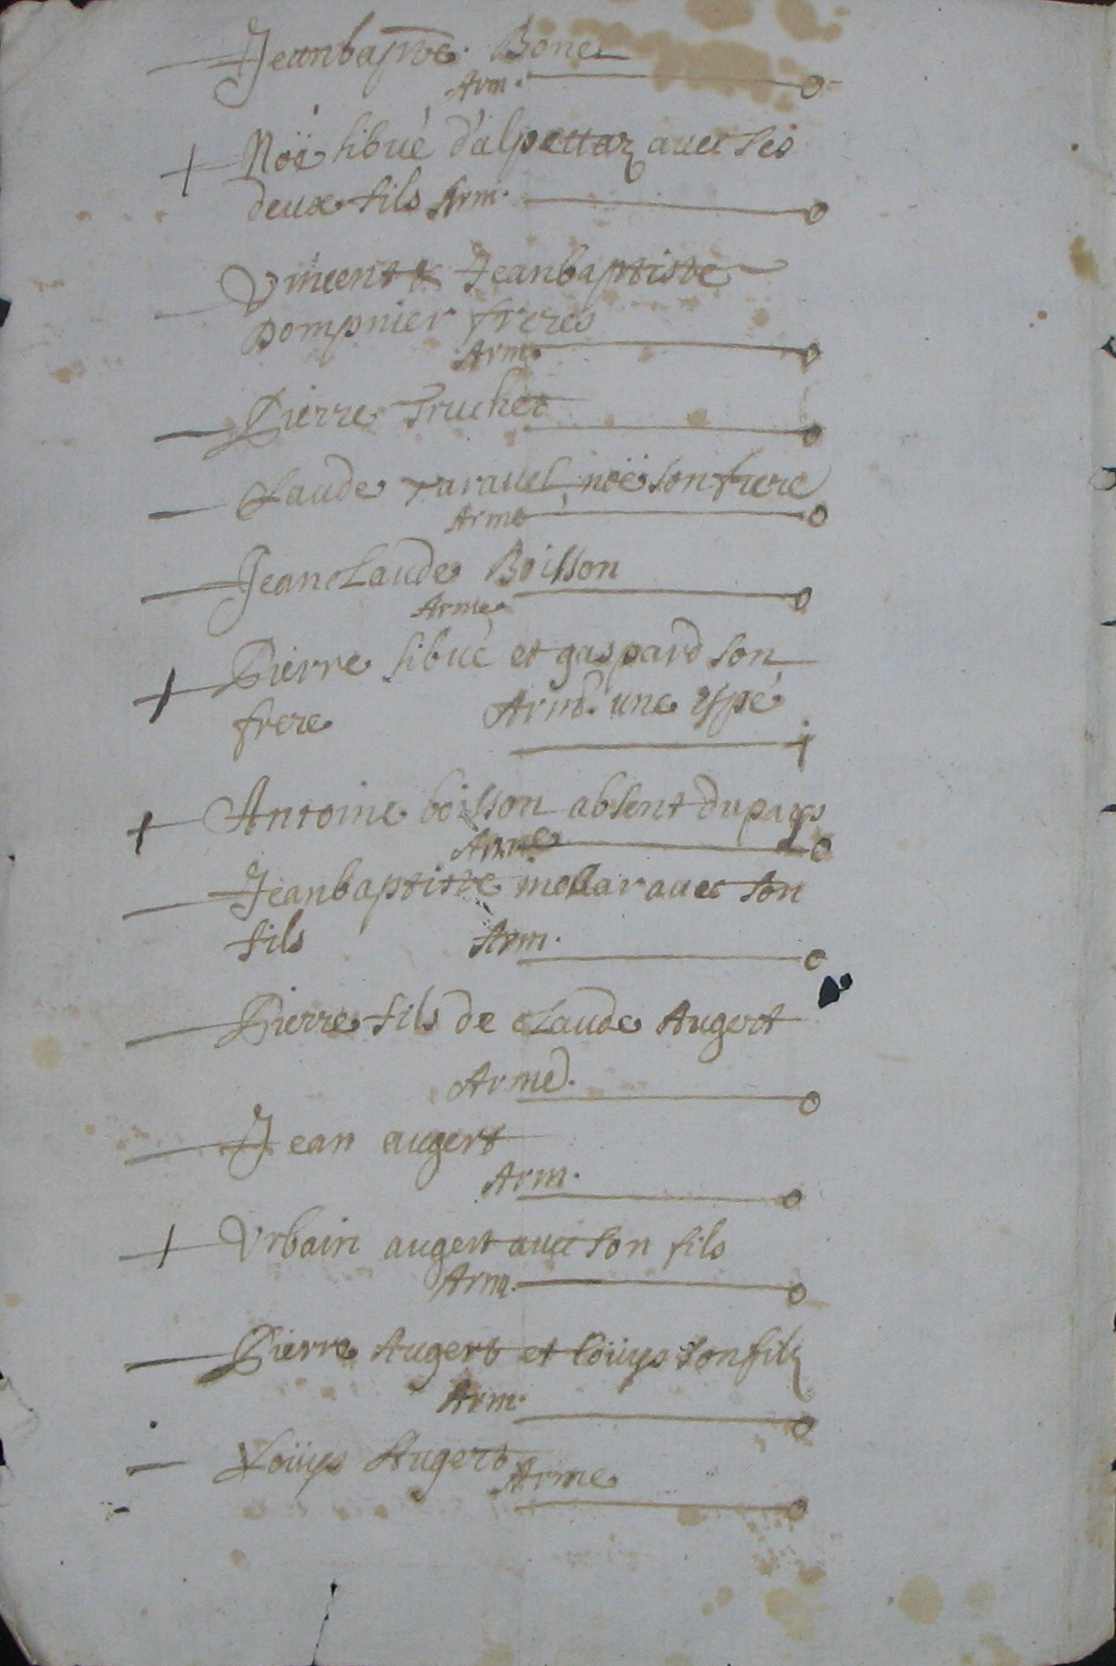 — Jeanbapte. Bonet
Arm. — o
+ Noë libué d'alpettaz auec ses
deux fils Arm. — o
— Vincent & Jeanbaptiste
Dompnier freres
Arm. — o
— Pierre Truchet — o
— Claude rarauel, noë son frere
Arme — o
— Jean Claude Boisson
Arme — o
+ Pierre libué et gaspard son
frere Armé. une espé
— j
+ Antoine boisson absent du pays
Arme — o
— Jeanbaptiste mollar auec son
fils Arm. — o
— Pierre fils de Claude Augert
Armé. — o
— Jean augert
Arm. — o
+ Vrbain augert auec son fils
Arm. — o
— Pierre Augert et loüys son filz
Arm. — o
— Loüys Augert Arme — o